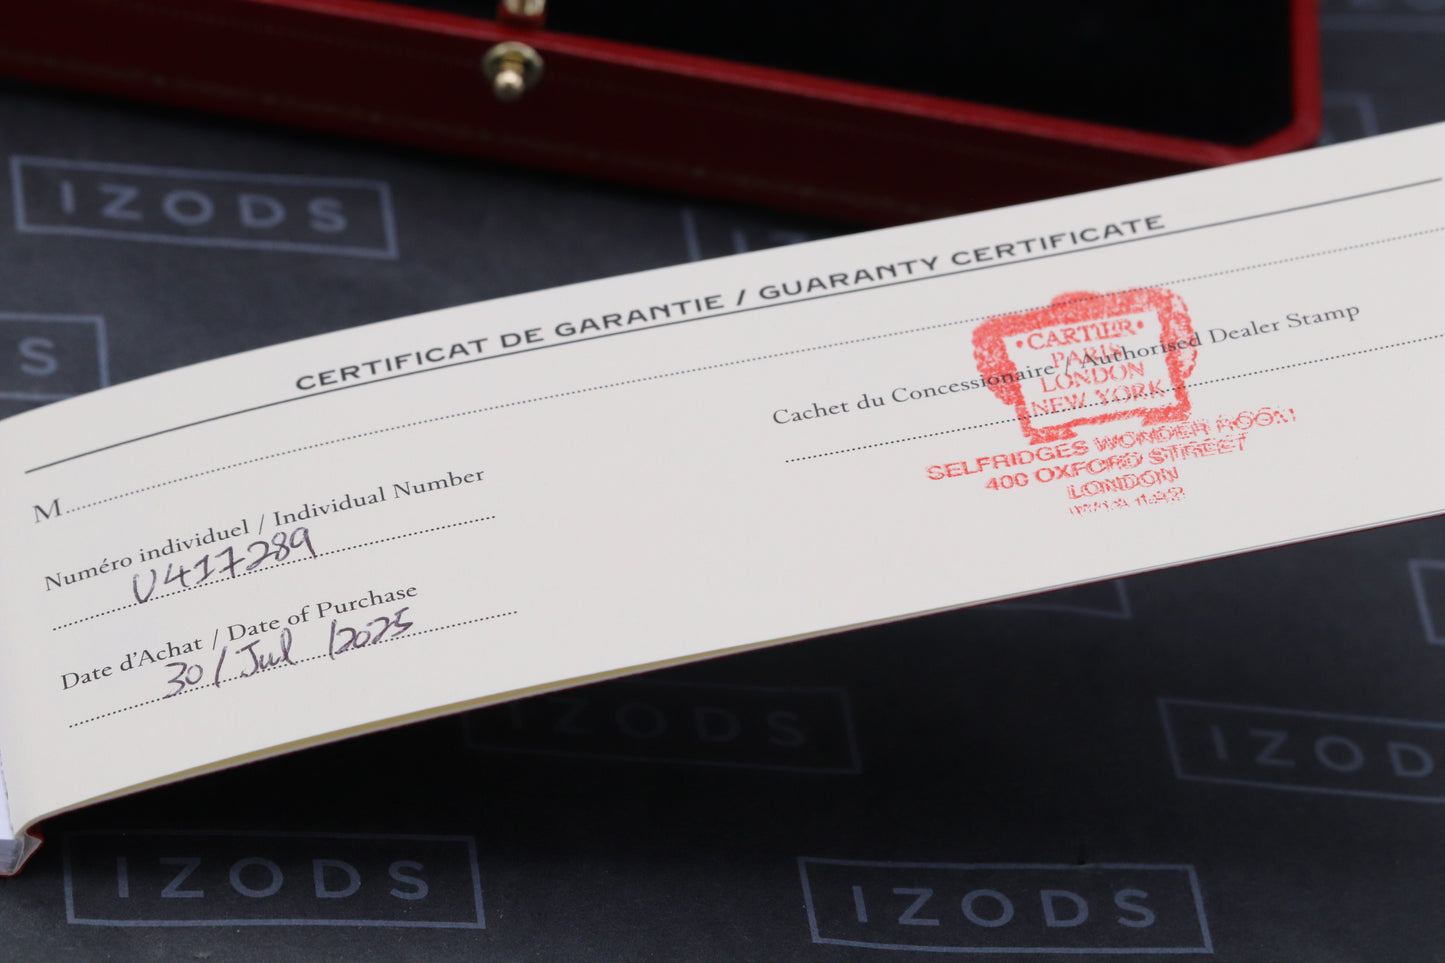 IZODS
S
CERTIFICAT DE GARANTIE / GUARANTY CERTIFICATE
M
Numéro individuel / Individual Number
U417289
Date d'Achat / Date of Purchase
30/Jul/2025
Cachet du Concessionaire / Authorised Dealer Stamp
•CARTIER•
PARIS
LONDON
NEW YORK
SELFRIDGES WONDER ROOM
400 OXFORD STREET
LONDON
IZODS
IZODS
IZODS
IZODS